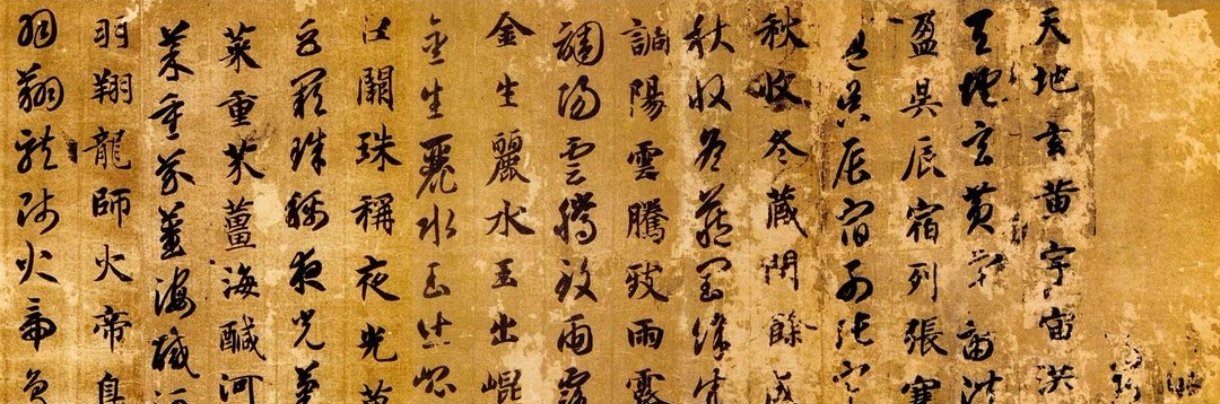 天地玄黄宇宙洪
天地玄黄宇宙洪
盈昃辰宿列張寒
盈昃辰宿列張寒
秋收冬藏閏餘成
秋收冬藏閏餘成
調陽雲騰致雨露
調陽雲騰致雨露
金生麗水玉出崐
金生麗水玉出崐
巨闕珠稱夜光菓
巨闕珠稱夜光菓
菜重芥薑海醎河
菜重芥薑海醎河
羽翔龍師火帝鳥
羽翔龍師火帝鳥